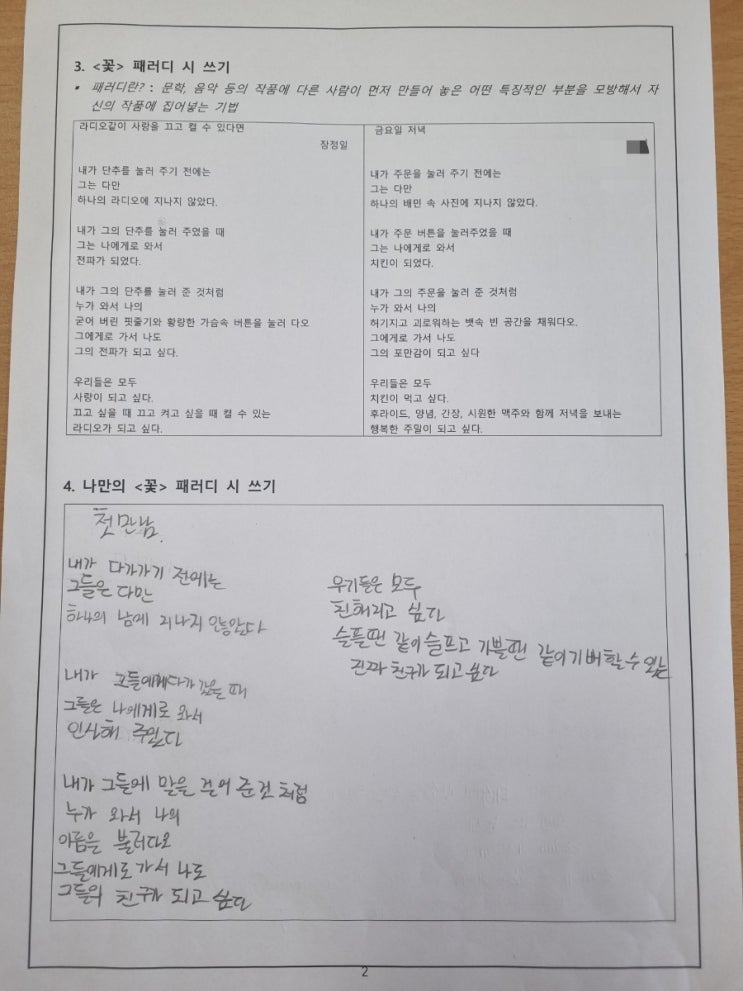 3. <꽃> 패러디 시 쓰기
▪ 패러디란? : 문학, 음악 등의 작품에 다른 사람이 먼저 만들어 놓은 어떤 특징적인 부분을 모방해서 자
신의 작품에 집어넣는 기법
라디오같이 사랑을 끄고 켤 수 있다면
장정일
내가 단추를 눌러 주기 전에는
그는 다만
하나의 라디오에 지나지 않았다.
내가 그의 단추를 눌러 주었을 때
그는 나에게로 와서
전파가 되었다.
내가 그의 단추를 눌러 준 것처럼
누가 와서 나의
굳어 버린 핏줄기와 황량한 가슴속 버튼을 눌러 다오
그에게로 가서 나도
그의 전파가 되고 싶다.
우리들은 모두
사랑이 되고 싶다.
끄고 싶을 때 끄고 켜고 싶을 때 켤 수 있는
라디오가 되고 싶다.
금요일 저녁
내가 주문을 눌러 주기 전에는
그는 다만
하나의 배민 속 사진에 지나지 않았다.
내가 주문 버튼을 눌러주었을 때
그는 나에게로 와서
치킨이 되었다.
내가 그의 주문을 눌러 준 것처럼
누가 와서 나의
허기지고 괴로워하는 뱃속 빈 공간을 채워다오.
그에게로 가서 나도
그의 포만감이 되고 싶다
우리들은 모두
치킨이 먹고 싶다.
후라이드, 양념, 간장, 시원한 맥주와 함께 저녁을 보내는
행복한 주말이 되고 싶다.
4. 나만의 <꽃> 패러디 시 쓰기
첫만남.
내가 다가가기 전에는
그들은 다만
하나의 남에 지나지 않았다
내가 그들에게 다가 갔을 때
그들은 나에게로 와서
인사해 주었다
내가 그들에 말을 걸어 준것 처럼
누가 와서 나의
이름을 불러다오
그들에게로 가서 나도
그들의 친구가 되고 싶다
우리들은 모두
친해지고 싶다
슬플땐 같이 슬프고 기쁠땐 같이 기뻐할 수 있는
진짜 친구가 되고 싶다
2